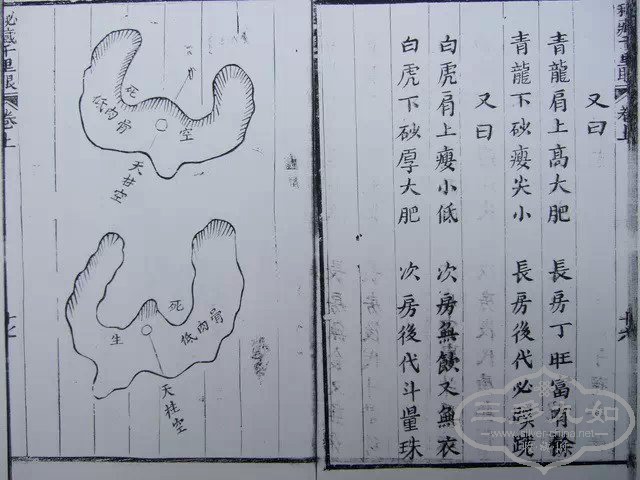 秘藏千里眼 卷上 十六
又曰
青龍肩上高大肥 長房丁旺富有餘
青龍下砂瘦尖小 長房後代必
又曰
白虎肩上瘦小低 次房無飲又無衣
白虎下砂厚大肥 次房後代斗量珠
死
低肉骨
空
天柱空
死
生
低肉骨
天柱空
秘藏千里眼 卷上 十七